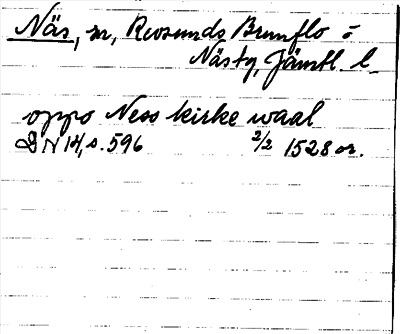 Näs, sn, Revsunds, Brunflo o
Näs tg, Jämtl. l.
oppo Ness kirke waal
DN 14, s. 596 2/2 1528 or.